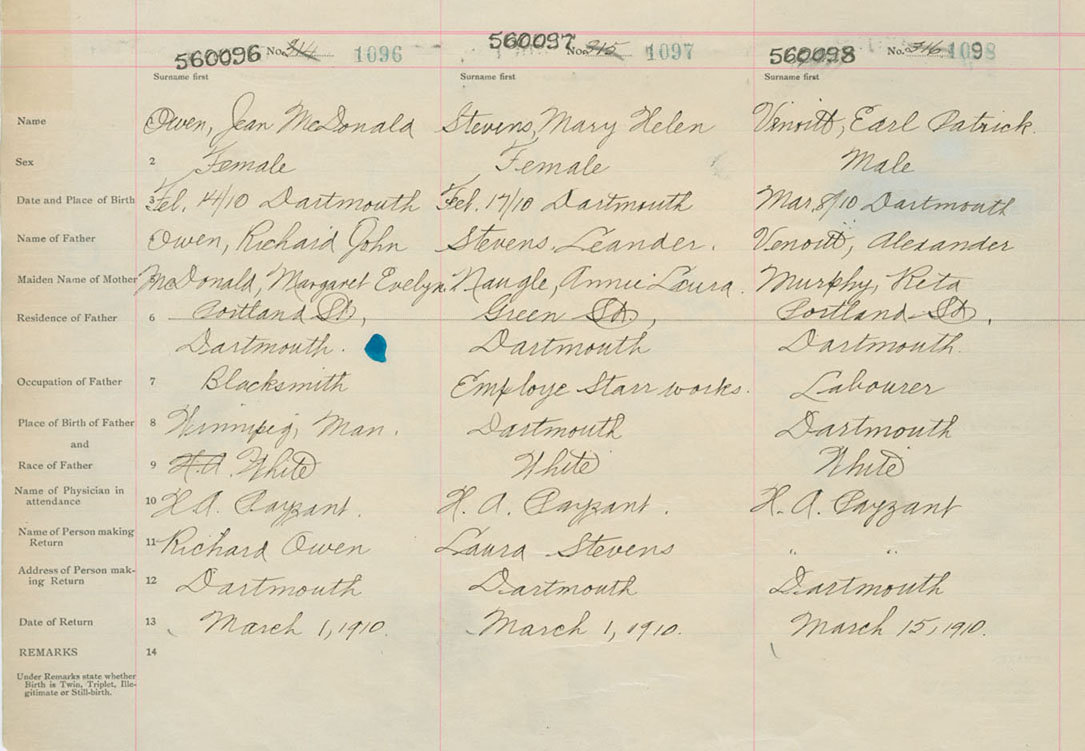 560096 No. 314 1096 560097 No. 315 1097 560098 No. 316 1098
Surname first Surname first Surname first
Name 1 Owen, Jean McDonald Stevens, Mary Helen Venoitt, Earl Patrick.
Sex 2 Female Female Male
Date and Place of Birth 3 Feb. 14/10 Dartmouth Feb. 17/10 Dartmouth Mar. 8/10 Dartmouth
Name of Father Owen, Richard John Stevens, Leander. Venoitt, Alexander
Maiden Name of Mother McDonald, Margaret Evelyn Naugle, Annie Laura. Murphy, Rita
Residence of Father 6 Portland St, Green St, Portland St,
Dartmouth. Dartmouth Dartmouth.
Occupation of Father 7 Blacksmith Employe Starr works. Labourer
Place of Birth of Father 8 Winnipig, Man. Dartmouth Dartmouth
and
Race of Father 9 H.A. White White White
Name of Physician in
attendance 10 H.A. Payzant. H. A. Payzant. H. A. Payzant
Name of Person making
Return 11 Richard Owen Laura Stevens " "
Address of Person mak-
ing Return 12 Dartmouth Dartmouth Dartmouth
Date of Return 13 March 1, 1910. March 1, 1910. March 15, 1910.
REMARKS 14
Under Remarks state whether
Birth is Twin, Triplet, Ille-
gitimate or Still-birth.